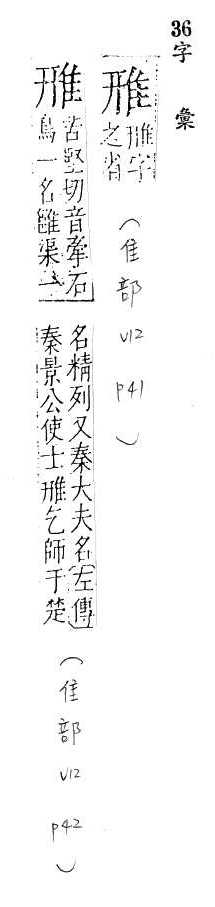 36字彙
雃
雃字
之省
（隹部 V12 P41）
雃
苦堅切音牽石
鳥一名雝渠一
名精列又秦大夫名左傳
秦景公使士雃乞師于楚
（隹部 V12 P42）